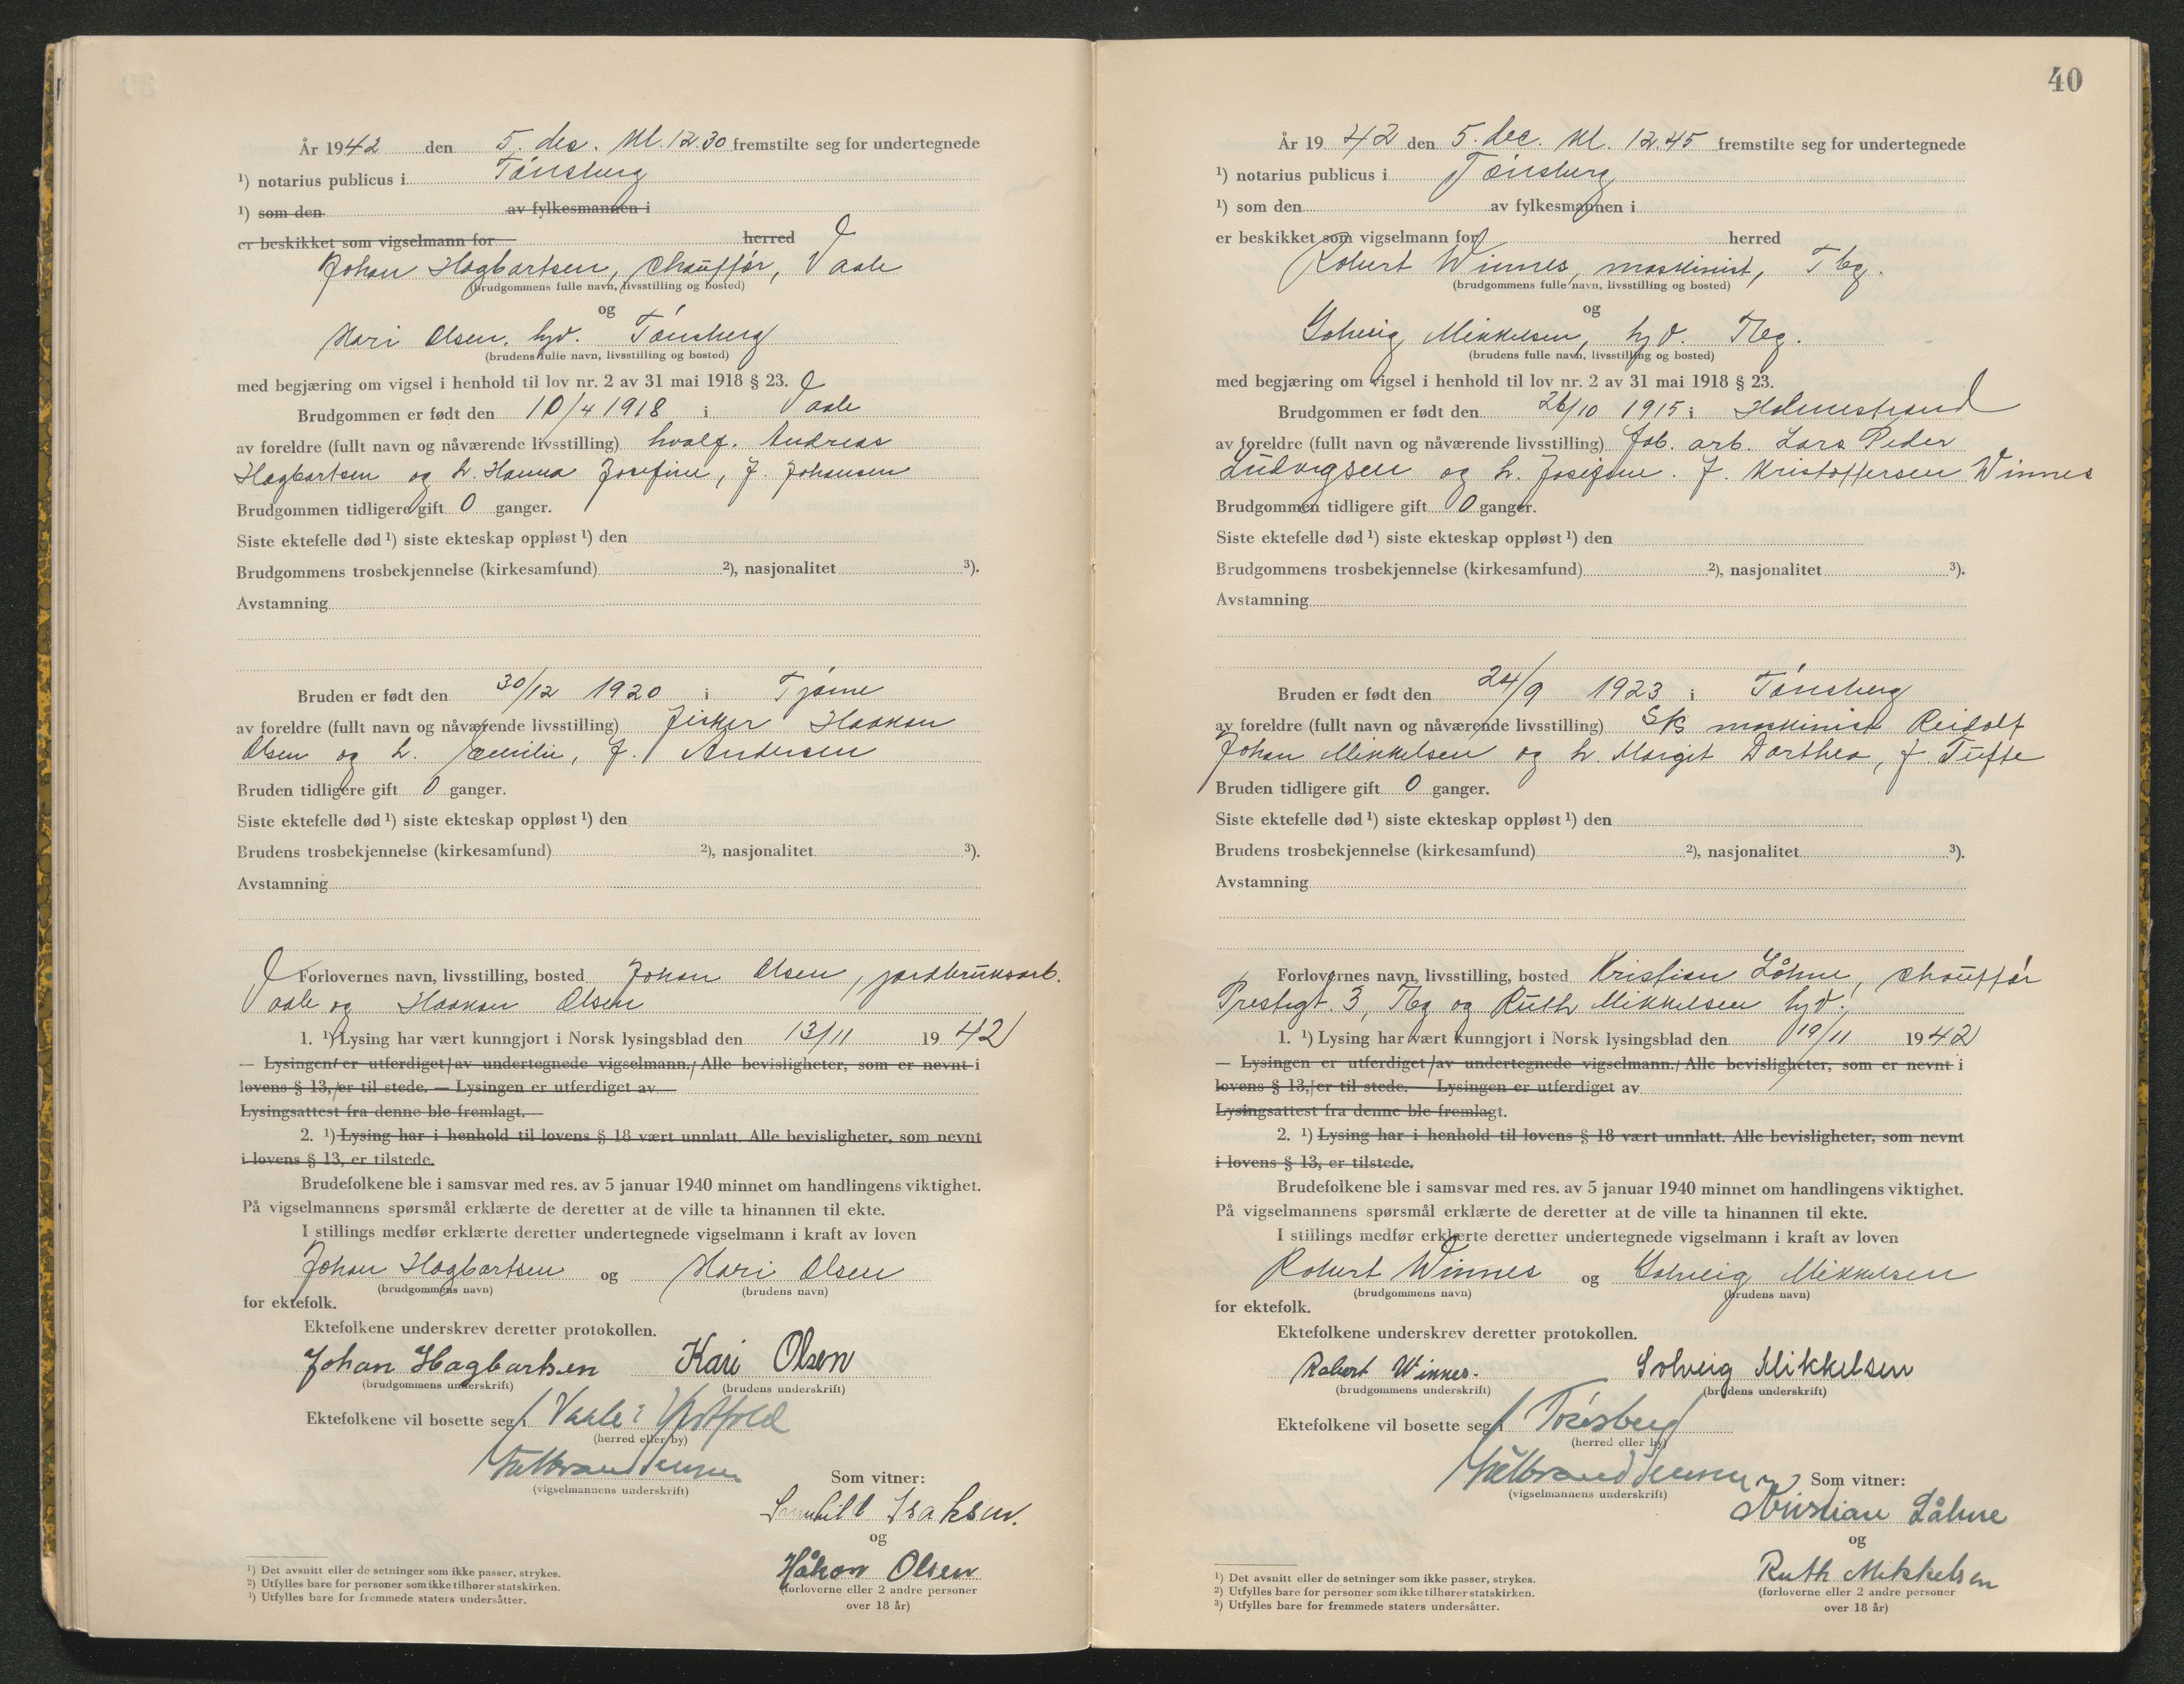 År 1942 den 5. des. kl. 12.30 fremstilte seg for undertegnede
¹) notarius publicus i Tönsberg
¹) som den av fylkesmannen i
er beskikket som vigselmann for herred
Johan Hagbartsen, chauffør, Vaale
(brudgommens fulle navn, livsstilling og bosted)
og
Kari Olsen, hyd. Tönsberg
(brudens fulle navn, livsstilling og bosted)
med begjæring om vigsel i henhold til lov nr. 2 av 31 mai 1918 § 23.
Brudgommen er født den 10/4 1918 i Vaale
av foreldre (fullt navn og nåværende livsstilling) hvalf. Andreas
Hagbartsen og h. Hanna Josefine, f. Johansen
Brudgommen tidligere gift 0 ganger.
Siste ektefelle død ¹) siste ekteskap oppløst ¹) den
Brudgommens trosbekjennelse (kirkesamfund) ²), nasjonalitet ³).
Avstamning
Bruden er født den 30/12 1920 i Tjøme
av foreldre (fullt navn og nåværende livsstilling) fisker Haakon
Olsen og h. Emilie, f. Andersen
Bruden tidligere gift 0 ganger.
Siste ektefelle død ¹) siste ekteskap oppløst ¹) den
Brudens trosbekjennelse (kirkesamfund) ²), nasjonalitet ³).
Avstamning
Forlovernes navn, livsstilling, bosted Johan Olsen, jordbruksarb.
Vaale og Haakon Olsen
1. ¹) Lysing har vært kunngjort i Norsk lysingsblad den 13/11 1942
— Lysingen er utferdiget av undertegnede vigselmann. Alle bevisligheter, som er nevnt i
lovens § 13, er til stede. — Lysingen er utferdiget av
Lysingsattest fra denne ble fremlagt.
2. ¹) Lysing har i henhold til lovens § 18 vært unnlatt. Alle bevisligheter, som nevnt
i lovens § 13, er tilstede.
Brudefolkene ble i samsvar med res. av 5 januar 1940 minnet om handlingens viktighet.
På vigselmannens spørsmål erklærte de deretter at de ville ta hinannen til ekte.
I stillings medfør erklærte deretter undertegnede vigselmann i kraft av loven
Johan Hagbartsen og Kari Olsen
(brudgommens navn) (brudens navn)
for ektefolk.
Ektefolkene underskrev deretter protokollen.
Johan Hagbartsen Kari Olsen
(brudgommens underskrift) (brudens underskrift)
Ektefolkene vil bosette seg i Vaale i Vestfold
(herred eller by)
(vigselmannens underskrift)
Som vitner:
Isaksen.
og
Håkon Olsen
(forloverne eller 2 andre personer
over 18 år)
¹) Det avsnitt eller de setninger som ikke passer, strykes.
²) Utfylles bare for personer som ikke tilhører statskirken.
³) Utfylles bare for fremmede staters undersåtter.
40
År 1942 den 5. dec. kl. 12.45 fremstilte seg for undertegnede
¹) notarius publicus i Tönsberg
¹) som den av fylkesmannen i
er beskikket som vigselmann for herred
Robert Winnes, maskinist, Tbg.
(brudgommens fulle navn, livsstilling og bosted)
og
Solveig Mikkelsen, hyd. Tbg.
(brudens fulle navn, livsstilling og bosted)
med begjæring om vigsel i henhold til lov nr. 2 av 31 mai 1918 § 23.
Brudgommen er født den 26/10 1915 i Holmestrand
av foreldre (fullt navn og nåværende livsstilling) fab. arb. Lars Peder
Ludvigsen og h. Josefine. f. Kristoffersen Winnes
Brudgommen tidligere gift 0 ganger.
Siste ektefelle død ¹) siste ekteskap oppløst ¹) den
Brudgommens trosbekjennelse (kirkesamfund) ²), nasjonalitet ³).
Avstamning
Bruden er født den 24/9 1923 i Tönsberg
av foreldre (fullt navn og nåværende livsstilling) Sk maskinist Reidolf
Johan Mikkelsen og h. Margit Dorthea, f. Tufte
Bruden tidligere gift 0 ganger.
Siste ektefelle død ¹) siste ekteskap oppløst ¹) den
Brudens trosbekjennelse (kirkesamfund) ²), nasjonalitet ³).
Avstamning
Forlovernes navn, livsstilling, bosted Kristian Låhne, chauffør
Prestegt. 3, Tbg og Ruth Mikkelsen hyd.
1. ¹) Lysing har vært kunngjort i Norsk lysingsblad den 19/11 1942
— Lysingen er utferdiget av undertegnede vigselmann. Alle bevisligheter, som er nevnt i
lovens § 13, er til stede. — Lysingen er utferdiget av
Lysingsattest fra denne ble fremlagt.
2. ¹) Lysing har i henhold til lovens § 18 vært unnlatt. Alle bevisligheter, som nevnt
i lovens § 13, er tilstede.
Brudefolkene ble i samsvar med res. av 5 januar 1940 minnet om handlingens viktighet.
På vigselmannens spørsmål erklærte de deretter at de ville ta hinannen til ekte.
I stillings medfør erklærte deretter undertegnede vigselmann i kraft av loven
Robert Winnes og Solveig Mikkelsen
(brudgommens navn) (brudens navn)
for ektefolk.
Ektefolkene underskrev deretter protokollen.
Robert Winnes. Solveig Mikkelsen
(brudgommens underskrift) (brudens underskrift)
Ektefolkene vil bosette seg i Tönsberg
(herred eller by)
(vigselmannens underskrift)
Som vitner:
Kristian Låhne
og
Ruth Mikkelsen
(forloverne eller 2 andre personer
over 18 år)
¹) Det avsnitt eller de setninger som ikke passer, strykes.
²) Utfylles bare for personer som ikke tilhører statskirken.
³) Utfylles bare for fremmede staters undersåtter.